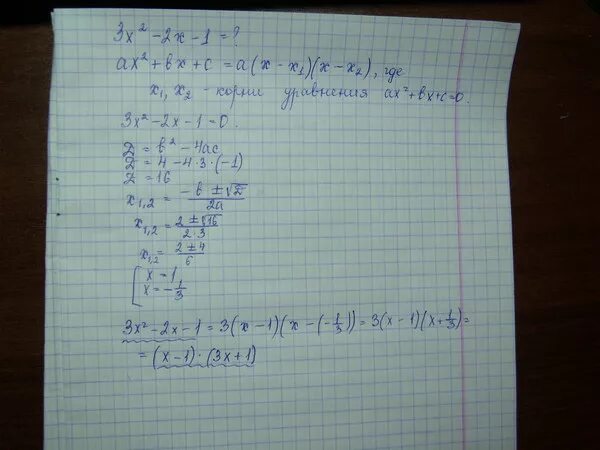 3x² - 2x - 1 = ?
ax² + bx + c = a(x - x₁)(x - x₂), где
x₁, x₂ - корни уравнения ax² + bx + c = 0.
3x² - 2x - 1 = 0.
D = b² - 4ac
D = 4 - 4·3·(-1)
D = 16
x₁,₂ = (-b ± √D)/2a
x₁,₂ = (2 ± √16)/2·3
x₁,₂ = (2 ± 4)/6
[ x = 1
x = -1/3
3x² - 2x - 1 = 3(x - 1)(x - (-1/3)) = 3(x - 1)(x + 1/3) =
= (x - 1)·(3x + 1)